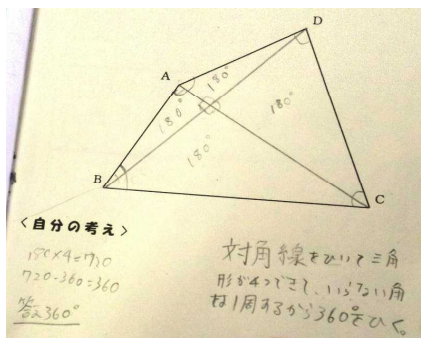 D
A
180°
180°
180°
180°
B
C
<自分の考え>
180×4=720
720-360=360
答え360°
対角線をひいて三角
形が4つできて、いらない角
は1周するから360°をひく。